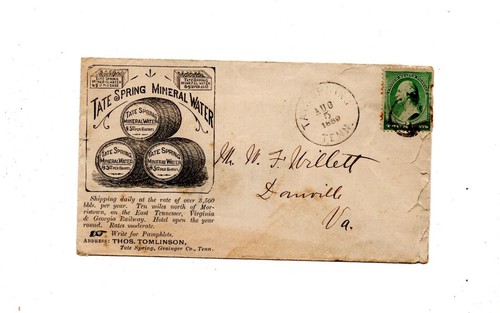 TATE SPRING MINERAL WATER
TATE SPRING
MINERAL WATER
TATE SPRING
MINERAL WATER
TATE SPRING
MINERAL WATER
Shipping daily at the rate of over 3,500
bbls. per year. Ten miles north of Mor-
ristown, on the East Tennessee, Virginia
& Georgia Railway. Hotel open the year
round. Rates moderate.
Write for Pamphlets.
ADDRESS: THOS. TOMLINSON,
Tate Spring, Grainger Co., Tenn.
TATE SPRING
AUG
5
TENN.
Mr W. F. Willett
Danville
Va.